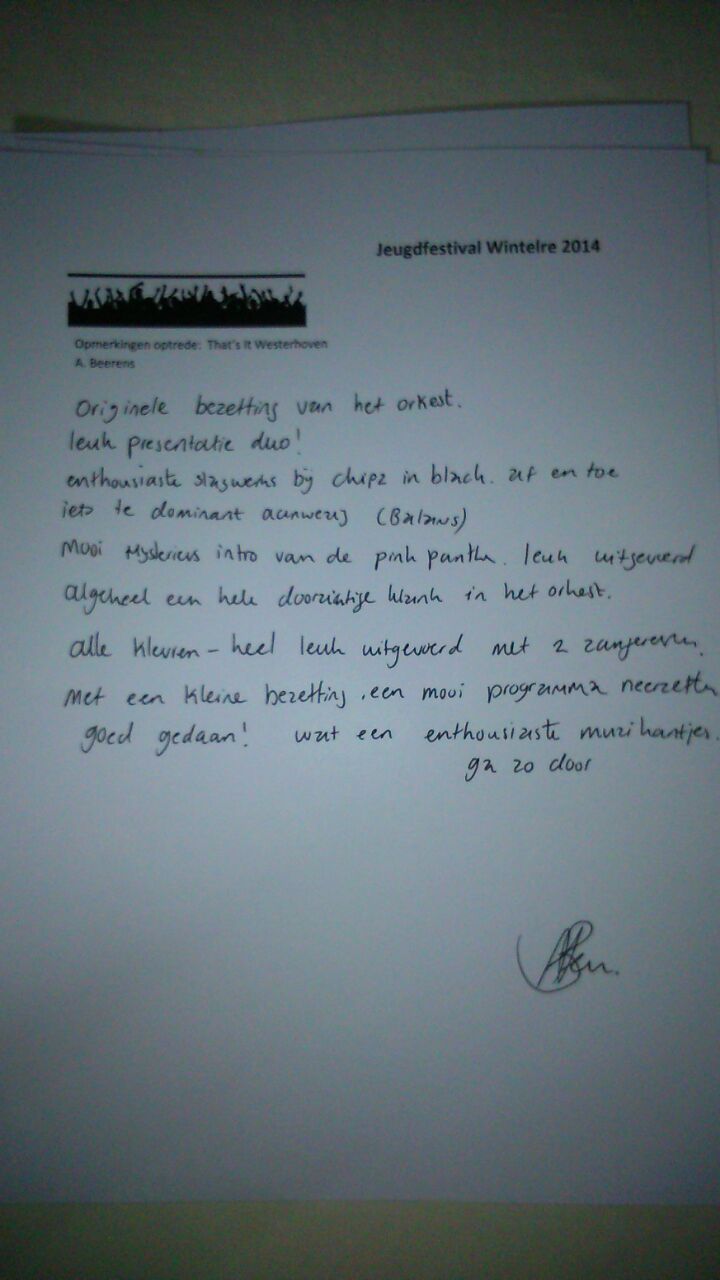 Jeugdfestival Wintelre 2014
Opmerkingen optrede: That's It Westerhoven
A. Beerens
Originele bezetting van het orkest.
leuk presentatie duo!
enthousiaste slagwerks bij chipz in black. af en toe
iets te dominant aanwezig (Balans)
Mooi Mysterieus intro van de pink panther. leuk uitgevoerd
algeheel een hele doorzichtige klank in het orkest.
alle kleuren - heel leuk uitgevoerd met 2 zangeressen.
Met een kleine bezetting, een mooi programma neerzetten
goed gedaan! wat een enthousiaste muzikantjes.
ga zo door